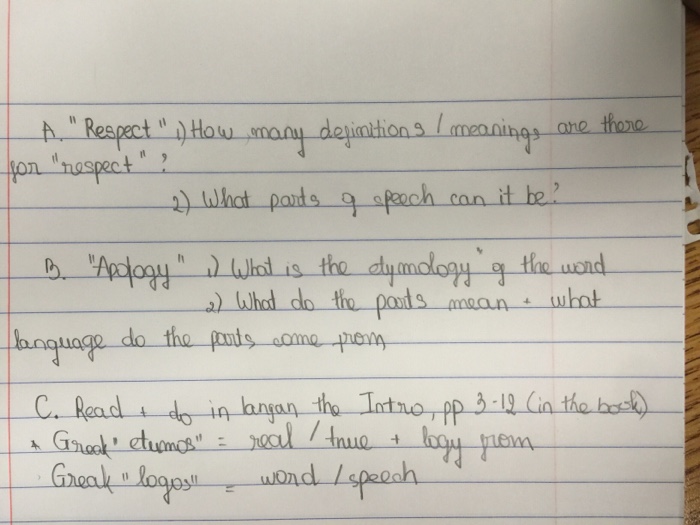 A. "Respect" 1) How many definitions / meanings are there
for "respect"?
2) What parts of speech can it be?
B. "Apology" 1) What is the etymology" of the word
2) What do the parts mean + what
language do the parts come from
C. Read + do in langan the Intro, pp 3-12 (in the book)
* Greak "etumos" = real / true + logy from
Greak "logos" = word / speech